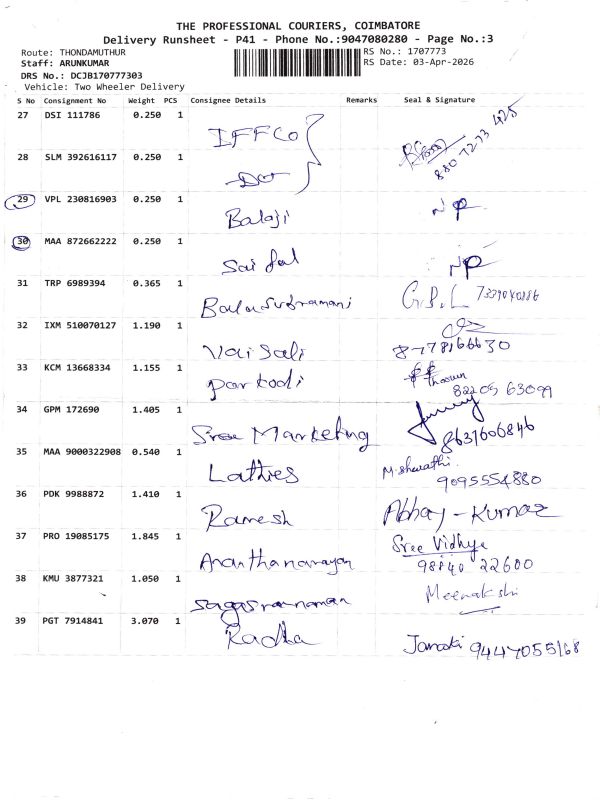 THE PROFESSIONAL COURIERS, COIMBATORE
Delivery Runsheet - P41 - Phone No.:9047080280 - Page No.:3
Route: THONDAMUTHUR RS No.: 1707773
Staff: ARUNKUMAR RS Date: 03-Apr-2026
DRS No.: DCJB170777303
Vehicle: Two Wheeler Delivery
S No Consignment No Weight PCS Consignee Details Remarks Seal & Signature
27 DSI 111786 0.250 1 IFFCO
28 SLM 392616117 0.250 1
29 VPL 230816903 0.250 1 Balaji NP
30 MAA 872662222 0.250 1 NP
31 TRP 6989394 0.365 1 Balasubramani
32 IXM 510070127 1.190 1 Vaisali 8778166630
33 KCM 13668334 1.155 1 Parkodi 82205 63099
34 GPM 172690 1.405 1 Sree Marketing 8637606846
35 MAA 9000322908 0.540 1 Lathies 9095554880
36 PDK 9988872 1.410 1 Ramesh Abhay-Kumar
37 PRO 19085175 1.845 1 Ananthanarayan Sree Vidhya 98840 22600
38 KMU 3877321 1.050 1 Meenakshi
39 PGT 7914841 3.070 1 Radha Janaki 9447055168